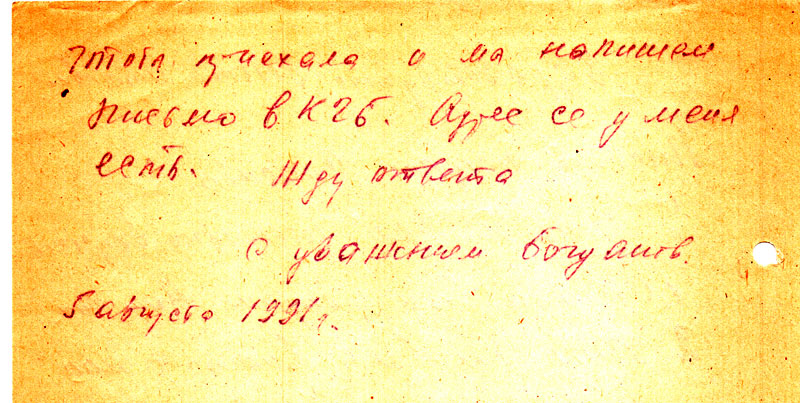 чтоб приехала и мы напишем
письмо в КГБ. Адрес ее у меня
есть. Жду ответа
С уважением Богданов.
5 августа 1991 г.